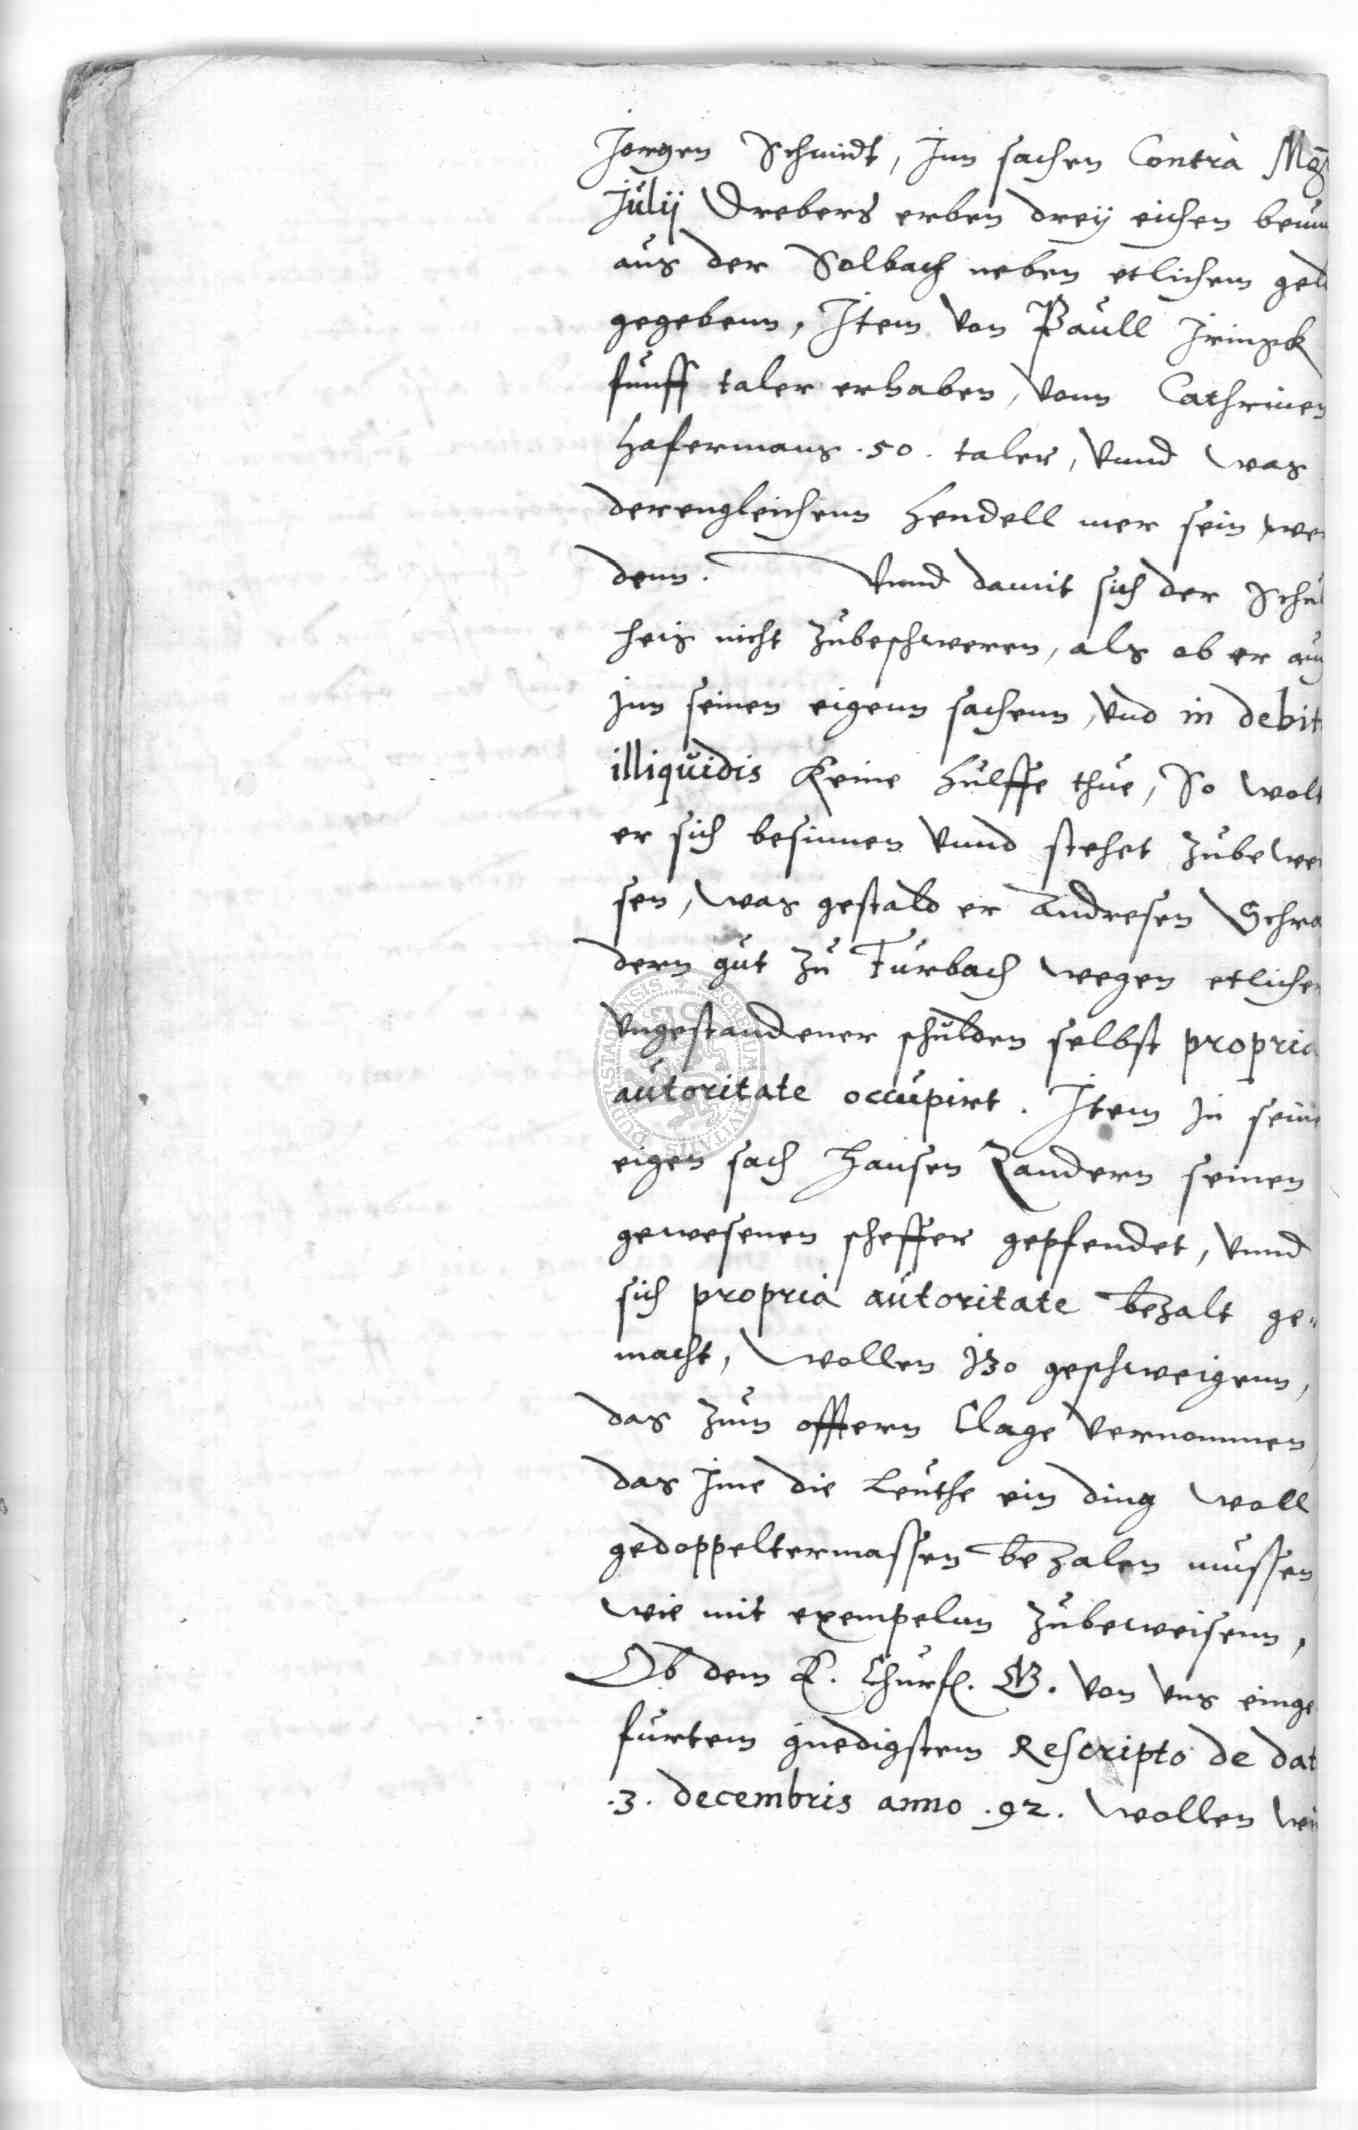 Jorgen Schmidt, Jnn sachen Contra Mag
Julij Drebers erben drey eichen
aus der Solbach neben etlichem geld
gegebenn, Item von Paull
funff taler erhaben, vonn Cathrinen
Hafermans .50. taler, vnnd was
derengleichenn Hendell mer sein wer
denn. Vnnd damit sich der Schul
heis nicht zubeschweren, als ob er auch
jnn seinen eigenn sachenn, vnd in debit
illiquidis Keine hulffe thue, So wolt
er sich besinnen vnnd stehet zubewei
sen, was gestald er Andresen Schra
dern gut zu Furbach wegen etlicher
vngestandener schulden selbst propria
autoritate occupirt. Item jn seine
eigen sach Hansen Zandern seinen
gewesenen scheffer gepfendet, vnnd
sich propria autoritate bezalt ge
macht, wollen jzo geschweigenn,
das zum offtern Clage vernommen,
das jme die Leuthe ein ding woll
gedoppeltermassen bezalen mussen
wie mit exempelnn zubeweisenn,
Ob dem E. Churfl. G. von vns einge
furtem gnedigstem Rescripto de dat
.3. decembris anno .92. wollen wir
SIGILLUM CIVITATIS DUDERSTADIENSIS